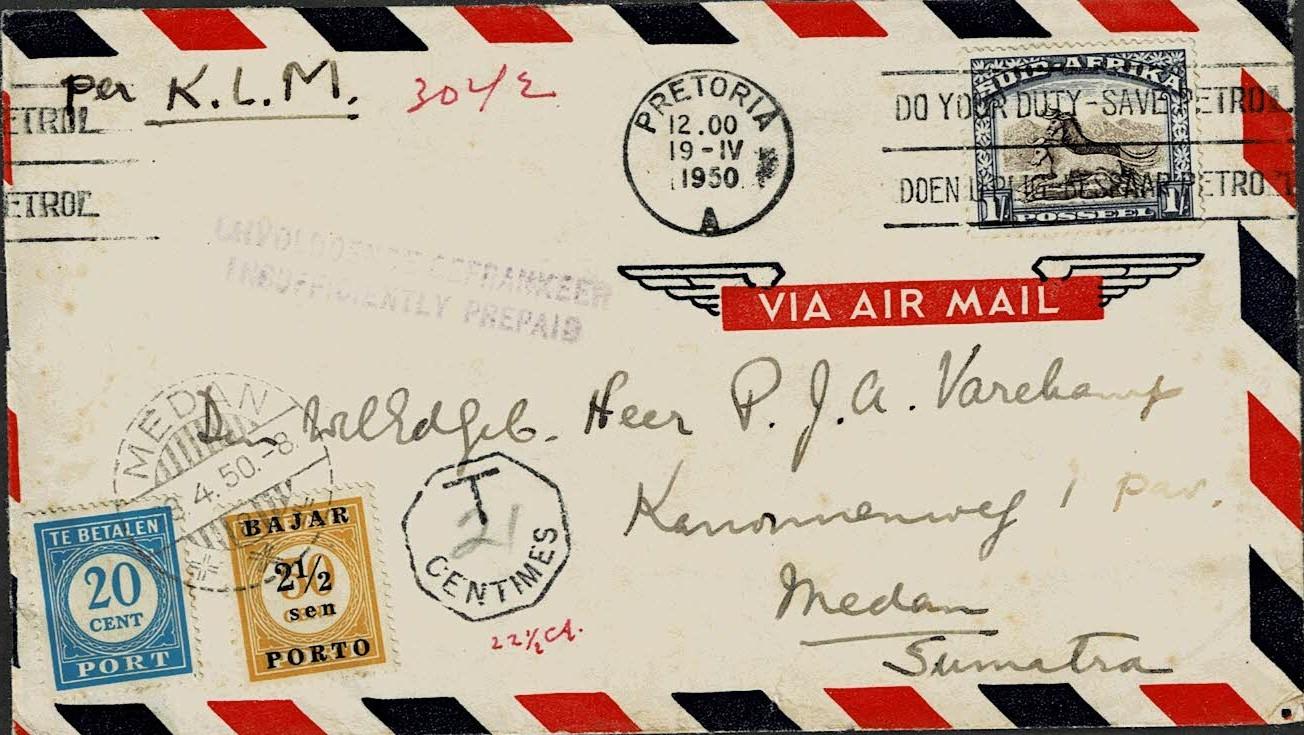 per K.L.M.
PRETORIA
12.00
19-IV
1950
A
ETROL
ETROL
DO YOUR DUTY-SAVE PETROL
DOEN U PLIG-BESPAAR PETROL
SUID-AFRIKA
1/- POSSEEL 1/-
ONVOLDOENDE GEFRANKEER
INSUFFICIENTLY PREPAID
VIA AIR MAIL
Den WelEdGeb. Heer P. J. A. Varekamp
Kanonnenweg 1 pav.
Medan
Sumatra
MEDAN
4.50.-8
TE BETALEN
20
CENT
PORT
BAJAR
2½
sen
PORTO
T
21
CENTIMES
22½ ct.